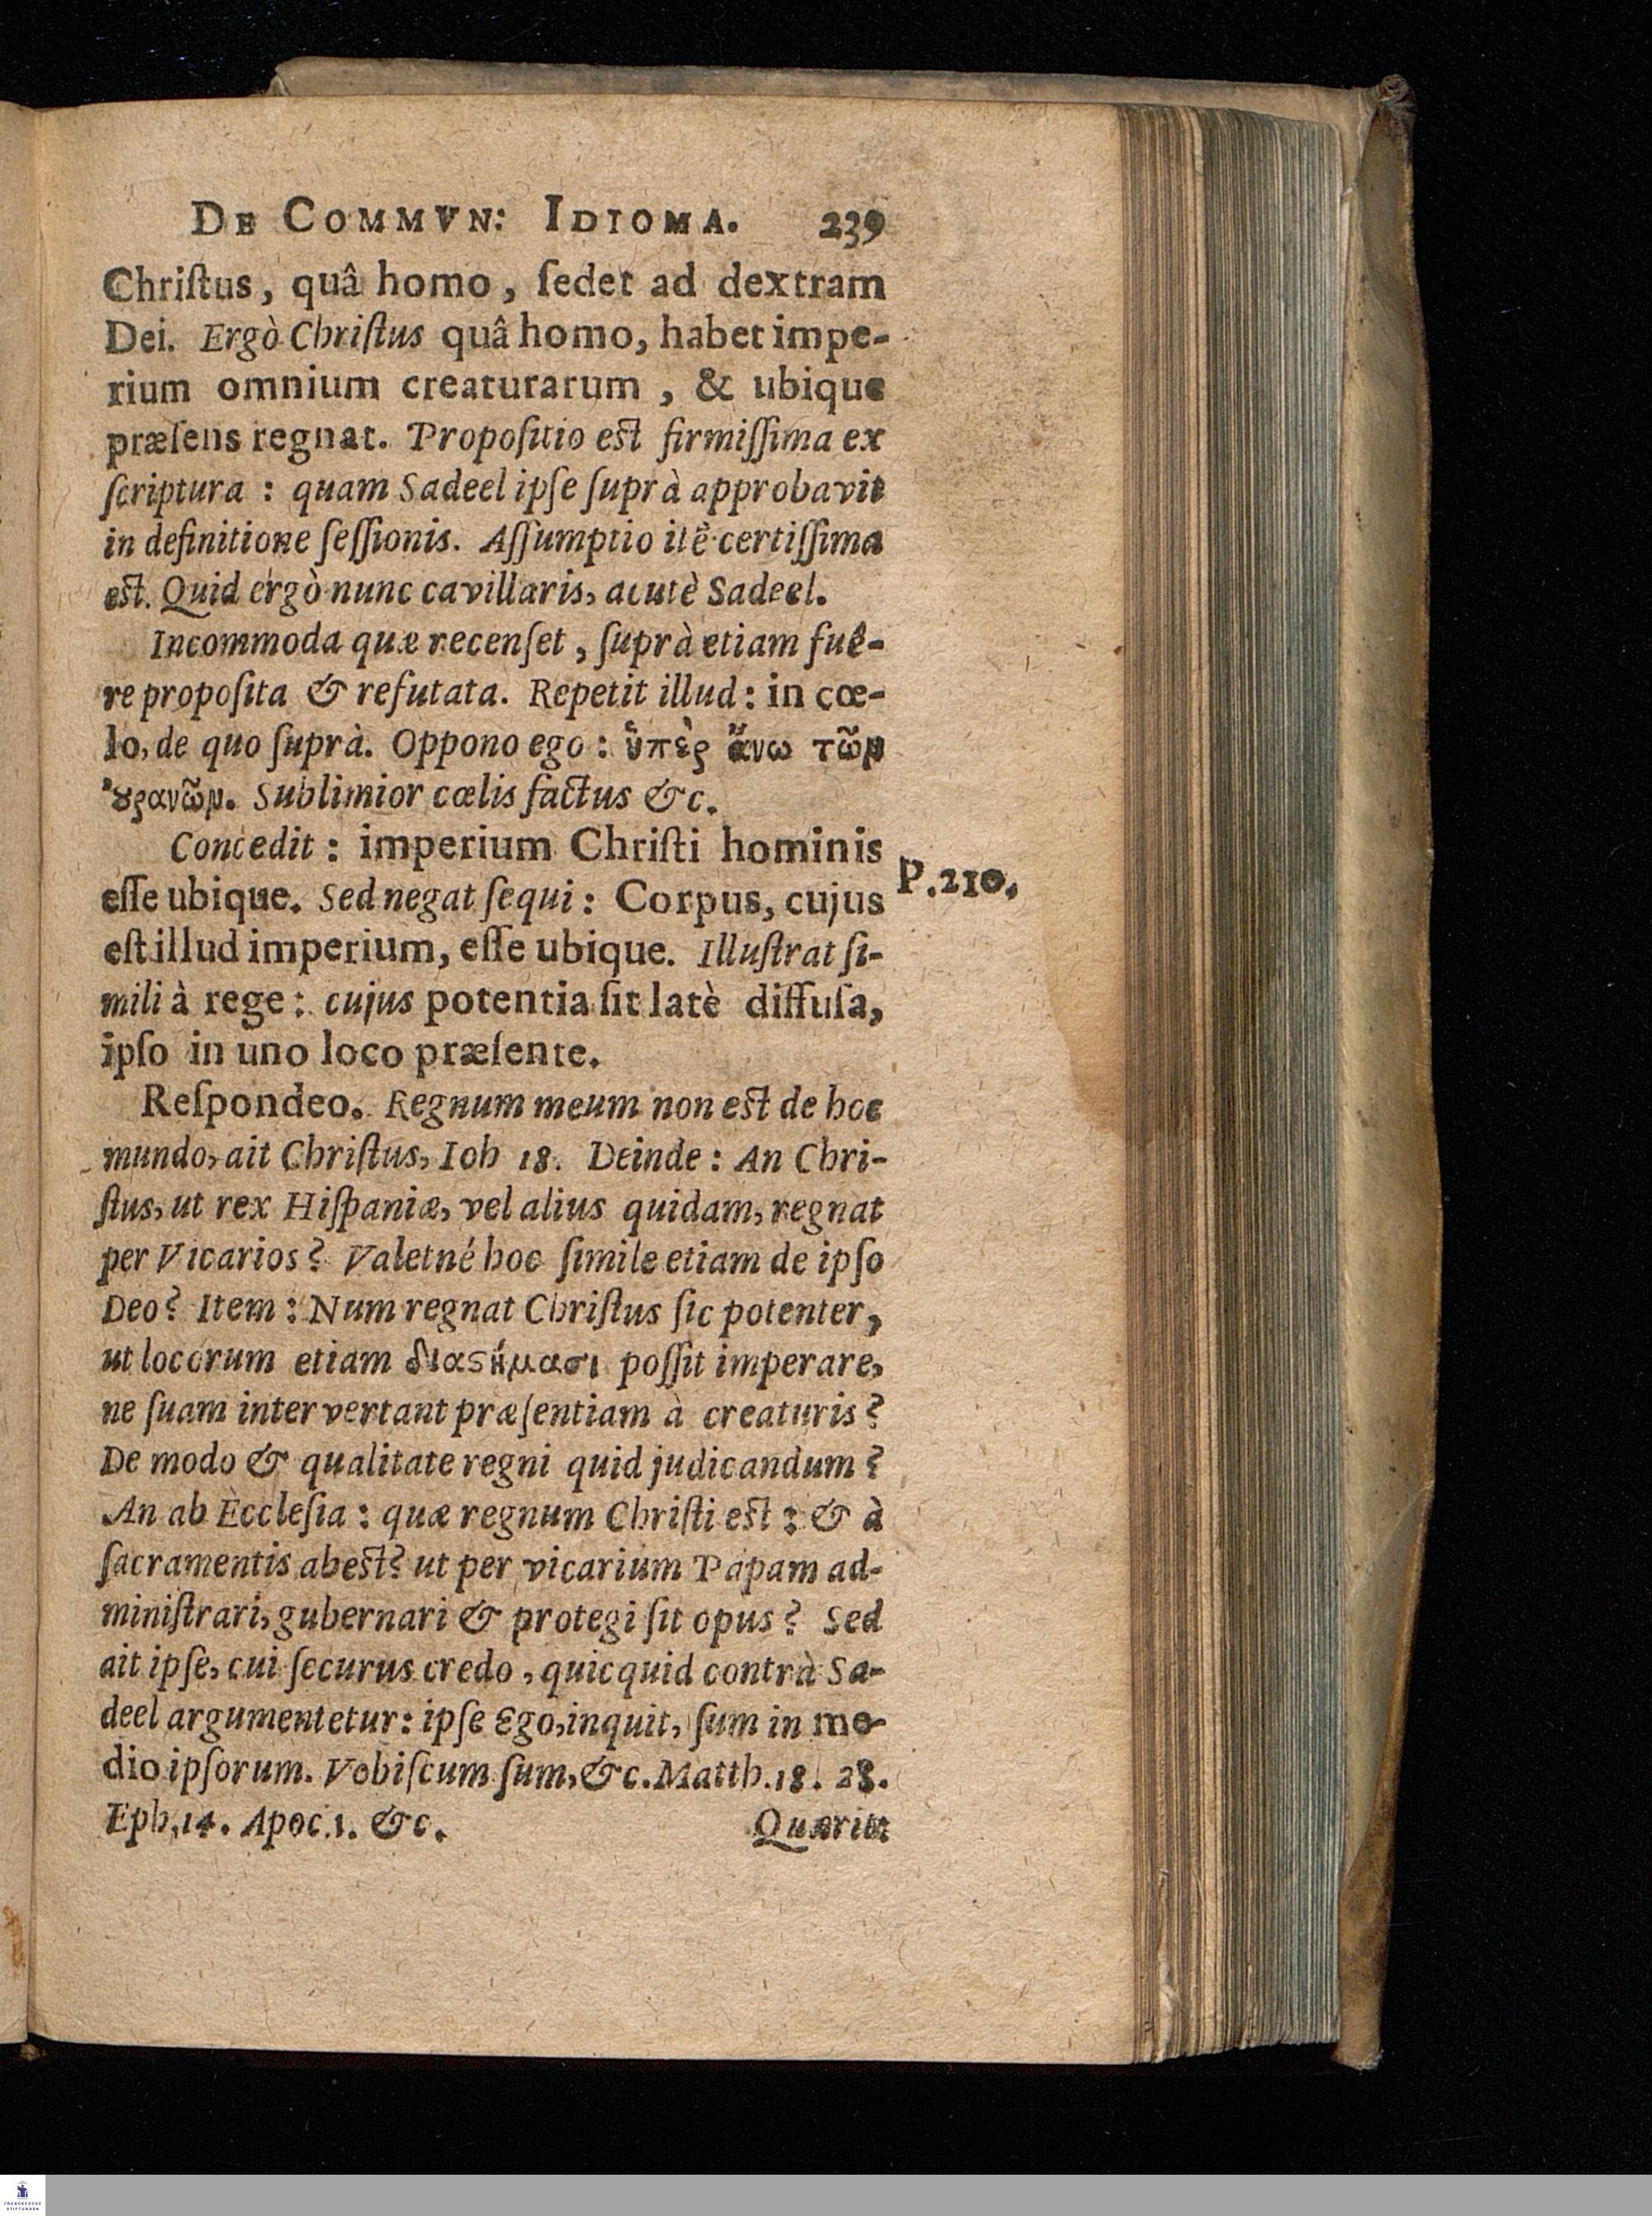 DE COMMVN: IDIOMA. 239
Chriſtus, quâ homo, ſedet ad dextram
Dei. Ergò Chriſtus quâ homo, habet impe-
rium omnium creaturarum, & ubique
præſens regnat. Propoſitio est firmiſſima ex
ſcriptura: quam Sadeel ipſe ſuprà approbavit
in definitione ſeſſionis. Aſſumptio itẽ certiſſima
est. Quid ergò nunc cavillaris, acutè Sadeel.
Incommoda quæ recenſet, ſuprà etiam fuê-
re propoſita & refutata. Repetit illud: in cœ-
lo, de quo ſuprà. Oppono ego: ὑπὲρ ἄνω τῶν
ȣ̓ρανῶν. Sublimior cœlis factus &c.
Concedit: imperium Chriſti hominis
P. 210.
eſſe ubique. Sed negat ſequi: Corpus, cujus
eſt illud imperium, eſſe ubique. Illuſtrat ſi-
mili à rege: cujus potentia ſit latè diffuſa,
ipſo in uno loco præſente.
Reſpondeo. Regnum meum non est de hoc
mundo, ait Chriſtus, Ioh 18. Deinde: An Chri-
ſtus, ut rex Hiſpaniæ, vel alius quidam, regnat
per Vicarios? Valetné hoc ſimile etiam de ipſo
Deo? Item: Num regnat Chriſtus ſic potenter,
ut locorum etiam διαϛήμασι poſſit imperare,
ne ſuam intervertant præſentiam à creaturis?
De modo & qualitate regni quid judicandum?
An ab Eccleſia: quæ regnum Chriſti est: & à
ſacramentis abest? ut per vicarium Papam ad-
miniſtrari, gubernari & protegi ſit opus? Sed
ait ipſe, cui ſecurus credo, quicquid contrà Sa-
deel argumentetur: ipſe Ego, inquit, ſum in me-
dio ipſorum. Vobiſcum ſum, &c. Matth. 18. 28.
Eph. 14. Apoc. 1. &c.
Quærit
FRANCKESCHE
STIFTUNGEN